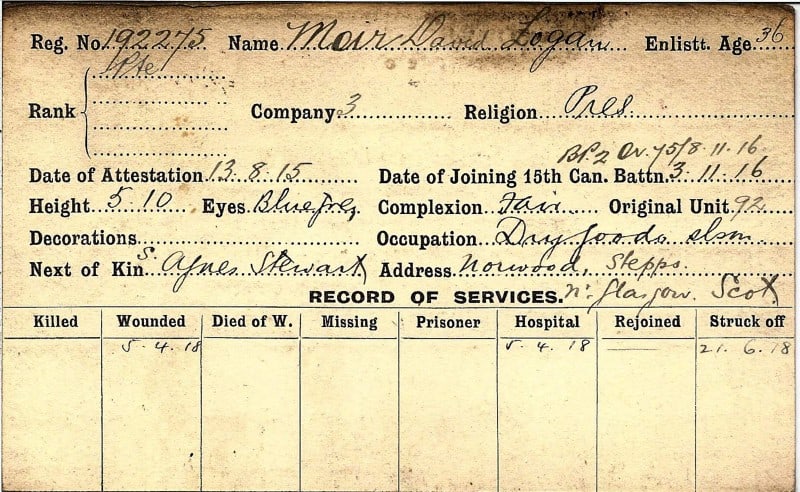 Reg. No. 192275 Name Moir David Logan Enlistt. Age 36
Pte
Rank Company 3 Religion Pres
B.P.2 Or. 75/8.11.16.
Date of Attestation 13.8.15 Date of Joining 15th Can. Battn. 3.11.16
Height 5.10 Eyes Blue Complexion Fair Original Unit 92
Decorations Occupation Dry goods slsm
S.
Next of Kin Agnes Stewart Address Norwood, Stepps
RECORD OF SERVICES. Nr. Glasgow. Scot.
Killed Wounded Died of W. Missing Prisoner Hospital Rejoined Struck off
5.4.18 5.4.18 21.6.18